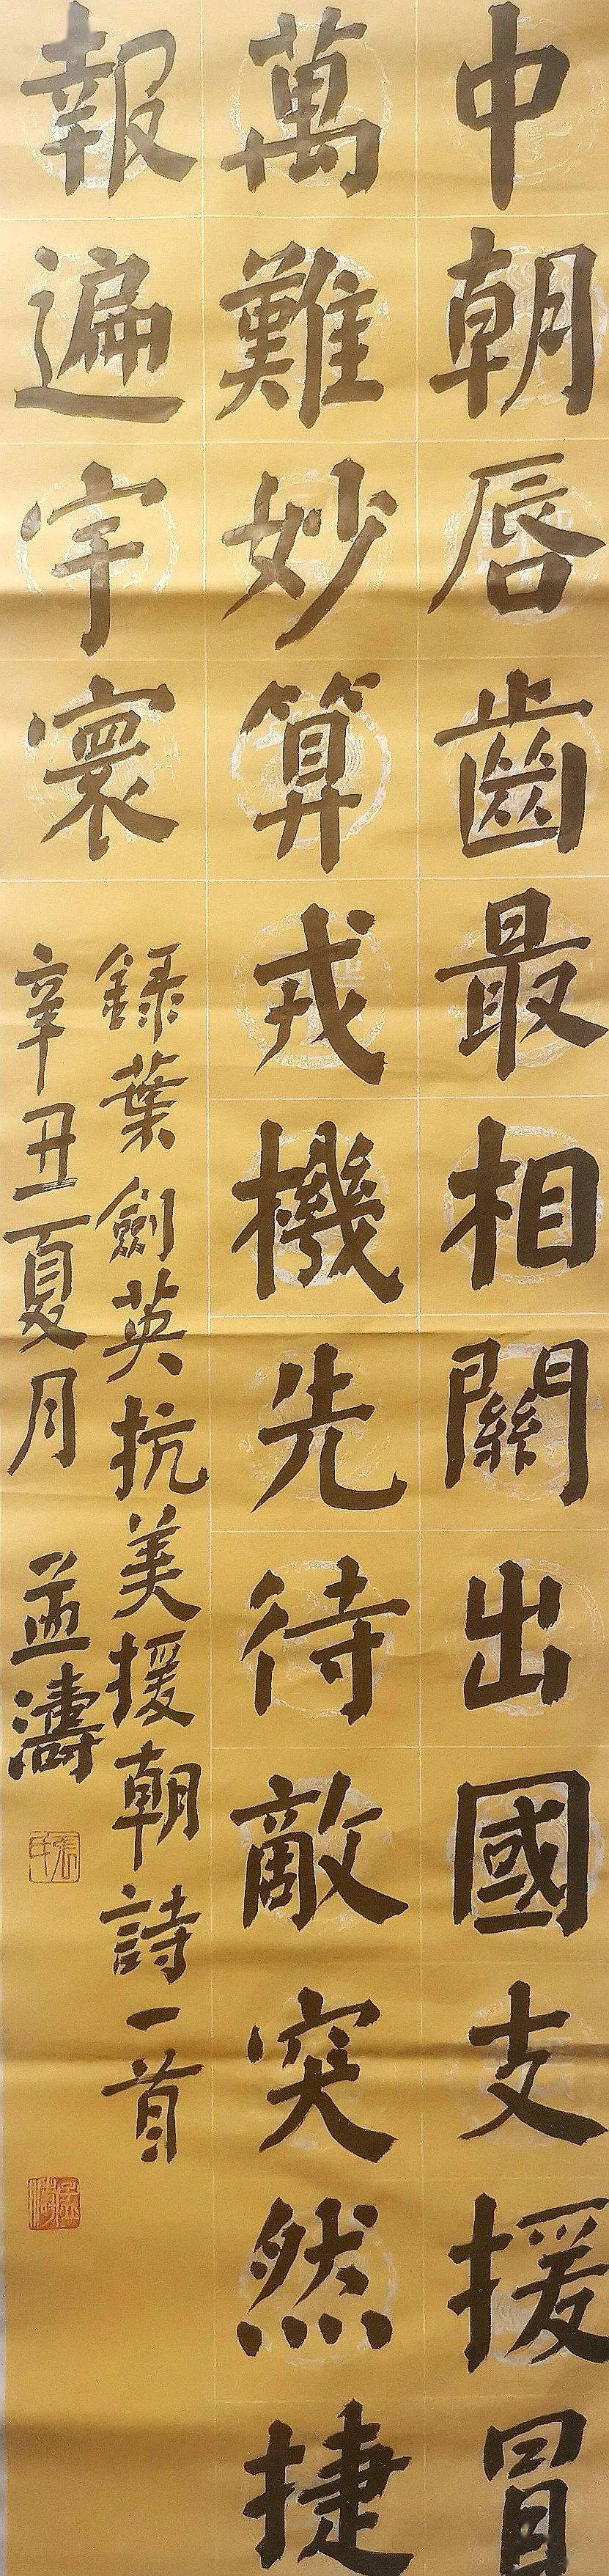 中朝唇齒最相關出國支援冒
萬難妙算戎機先待敵突然捷
報遍宇寰
錄葉劍英抗美援朝詩一首
辛丑夏月 濤